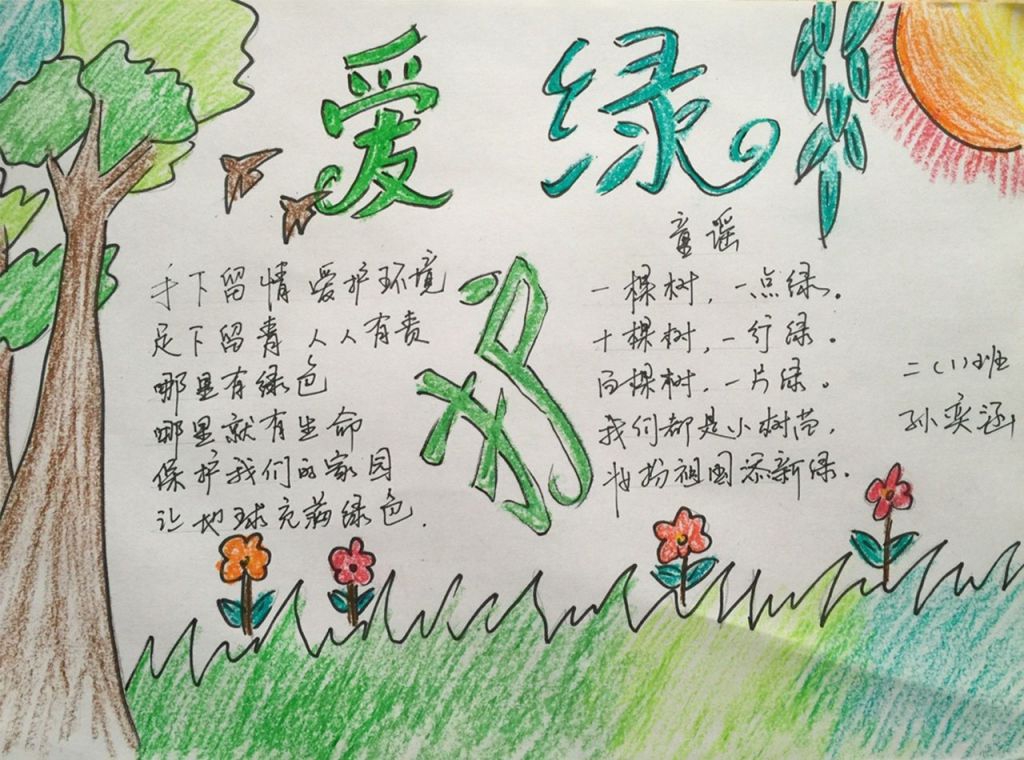 爱绿
护
手下留情 爱护环境
足下留青 人人有责
哪里有绿色
哪里就有生命
保护我们的家园
让地球充满绿色.
童谣
一棵树，一点绿。
十棵树，一行绿。
百棵树，一片绿。
我们都是小树苗，
妆扮祖国添新绿.
二(1)班
孙奕涵